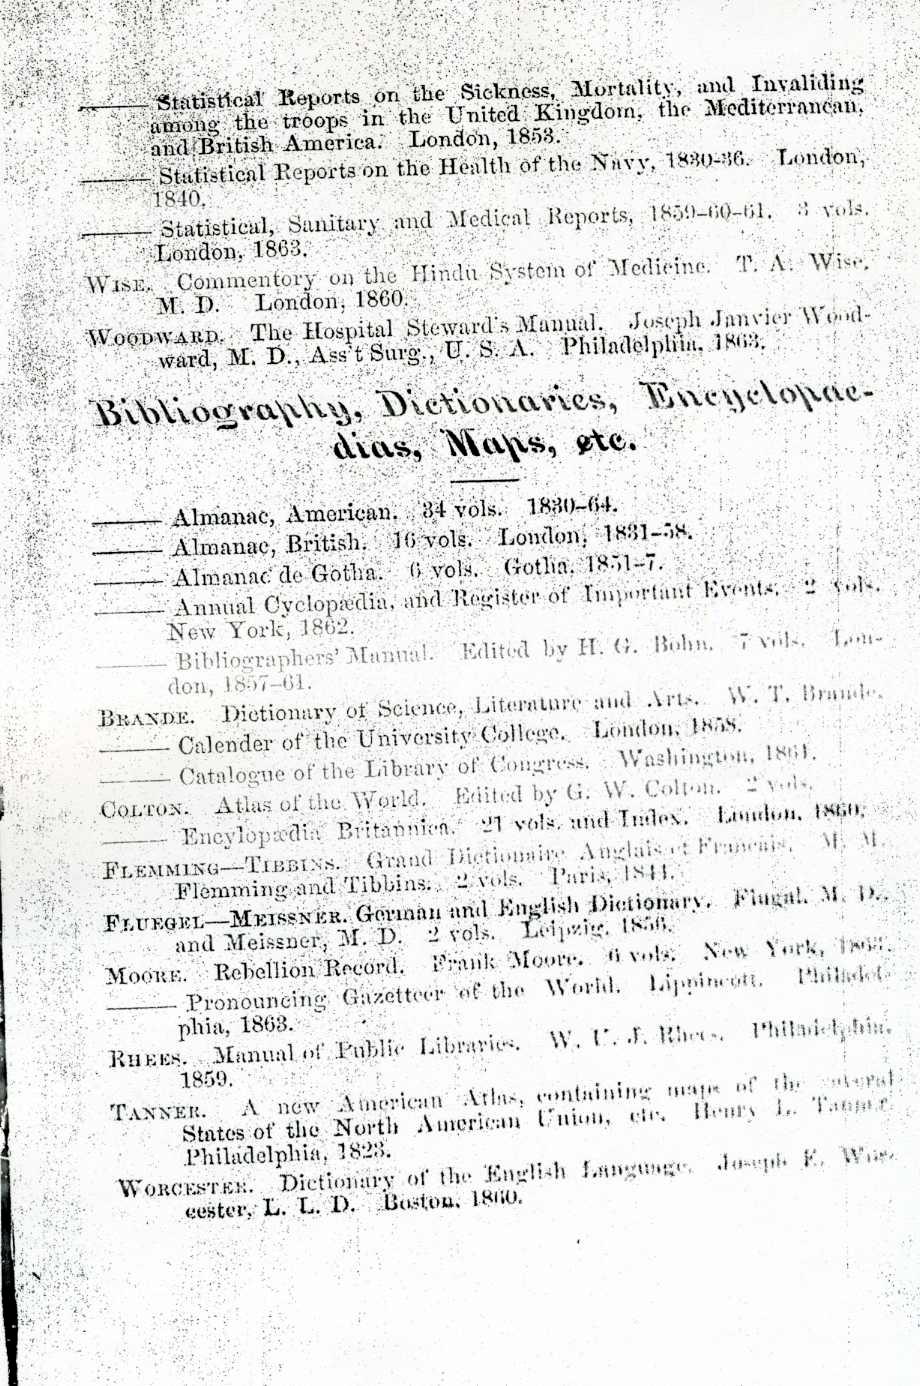 ——— Statistical Reports on the Sickness, Mortality, and Invaliding
among the troops in the United Kingdom, the Mediterranean,
and British America. London, 1853.
——— Statistical Reports on the Health of the Navy, 1830-36. London,
1840.
——— Statistical, Sanitary and Medical Reports, 1859-60-61. 3 vols.
London, 1863.
WISE. Commentory on the Hindu System of Medicine. T. A. Wise,
M. D. London, 1860.
WOODWARD. The Hospital Steward's Manual. Joseph Janvier Wood-
ward, M. D., Ass't Surg., U. S. A. Philadelphia, 1863.
Bibliography, Dictionaries, Encyclopae-
dias, Maps, etc.
——— Almanac, American. 34 vols. 1830-64.
——— Almanac, British. 16 vols. London, 1831-58.
——— Almanac de Gotha. 6 vols. Gotha, 1851-7.
——— Annual Cyclopædia, and Register of Important Events. 2 vols.
New York, 1862.
——— Bibliographers' Manual. Edited by H. G. Bohn. 7 vols. Lon-
don, 1857-61.
BRANDE. Dictionary of Science, Literature and Arts. W. T. Brande.
——— Calender of the University College. London, 1858.
——— Catalogue of the Library of Congress. Washington, 1861.
COLTON. Atlas of the World. Edited by G. W. Colton. 2 vols.
——— Encylopædia Britannica. 21 vols. and Index. London, 1860.
FLEMMING—TIBBINS. Grand Dictionaire Anglais et Francais. M. M.
Flemming and Tibbins. 2 vols. Paris, 1844.
FLUEGEL—MEISSNER. German and English Dictionary. Flugal, M. D.,
and Meissner, M. D. 2 vols. Leipzig, 1856.
MOORE. Rebellion Record. Frank Moore. 6 vols. New York, 1863.
——— Pronouncing Gazetteer of the World. Lippincott. Philadel-
phia, 1863.
RHEES. Manual of Public Libraries. W. J. Rhees. Philadelphia,
1859.
TANNER. A new American Atlas, containing maps of the several
States of the North American Union, etc. Henry Tanner.
Philadelphia, 1823.
WORCESTER. Dictionary of the English Language. Joseph E. Wor-
cester, L. L. D. Boston, 1860.